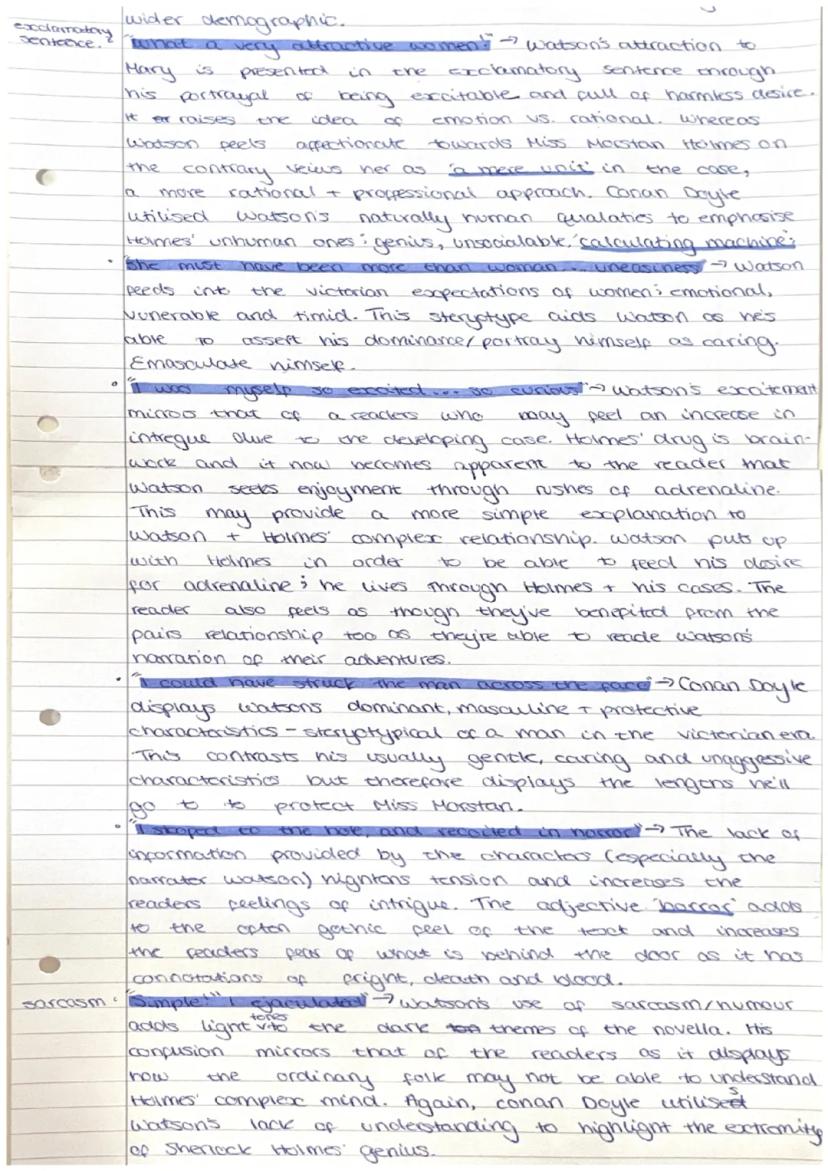 wider demographic.
exclamatory sentence.
"What a very attractive women!" → Watson's attraction to
Mary is presented in the exclamatory sentence through
his portrayal of being excitable and full of harmless desire.
It raises the idea of emotion vs. rational. Whereas
Watson feels affectionate towards Miss Morstan Holmes on
the contrary veiws her as 'a mere unit' in the case,
a more rational + proffessional approach. Conan Doyle
utilised Watson's naturally human qualaties to emphasise
Holmes' unhuman ones: genius, unsocialable, 'calculating machine'.
• "She must have been more than woman... uneasiness" → Watson
feeds into the victorian expectations of women; emotional,
vunerable and timid. This steryotype aids Watson as he's
able to assert his dominance/portray himself as caring.
Emasculate himself.
• "I was myself so excited... so curious" → Watson's excitement
mirrors that of a readers who may feel an increase in
intregue due to the developing case. Holmes' drug is brain-
work and it now becomes apparent to the reader that
Watson seeks enjoyment through rushes of adrenaline.
This may provide a more simple explanation to
Watson + Holmes' complex relationship. Watson puts up
with Holmes in order to be able to feed his desire
for adrenaline; he lives through Holmes + his cases. The
reader also feels as though they've benefited from the
pairs relationship too as they're able to reade Watson's
narration of their adventures.
• "I could have struck the man across the face" → Conan Doyle
displays Watsons dominant, masculine + protective
characteristics - sterytypical of a man in the victorian era.
This contrasts his usually gentle, caring and unaggessive
characteristics but therefore displays the lengths he'll
go to to protect Miss Morstan.
• "I stoped to the hole, and recoiled in horror" → The lack of
information provided by the characters (especially the
narrator Watson) hightens tension and increases the
readers feelings of intrigue. The adjective 'horror' adds
to the often gothic feel of the text and increases
the readers fear of what is behind the door as it has
connotations of fright, death and blood.
sarcasm:
"Simple!" I ejaculated" → Watson's use of sarcasm/humour
adds light tones to the dark themes of the novella. His
confusion mirrors that of the readers as it displays
how the ordinary folk may not be able to understand
Holmes' complex mind. Again, Conan Doyle utilises
Watson's lack of understanding to highlight the extremity
of Sherlock Holmes' genius.